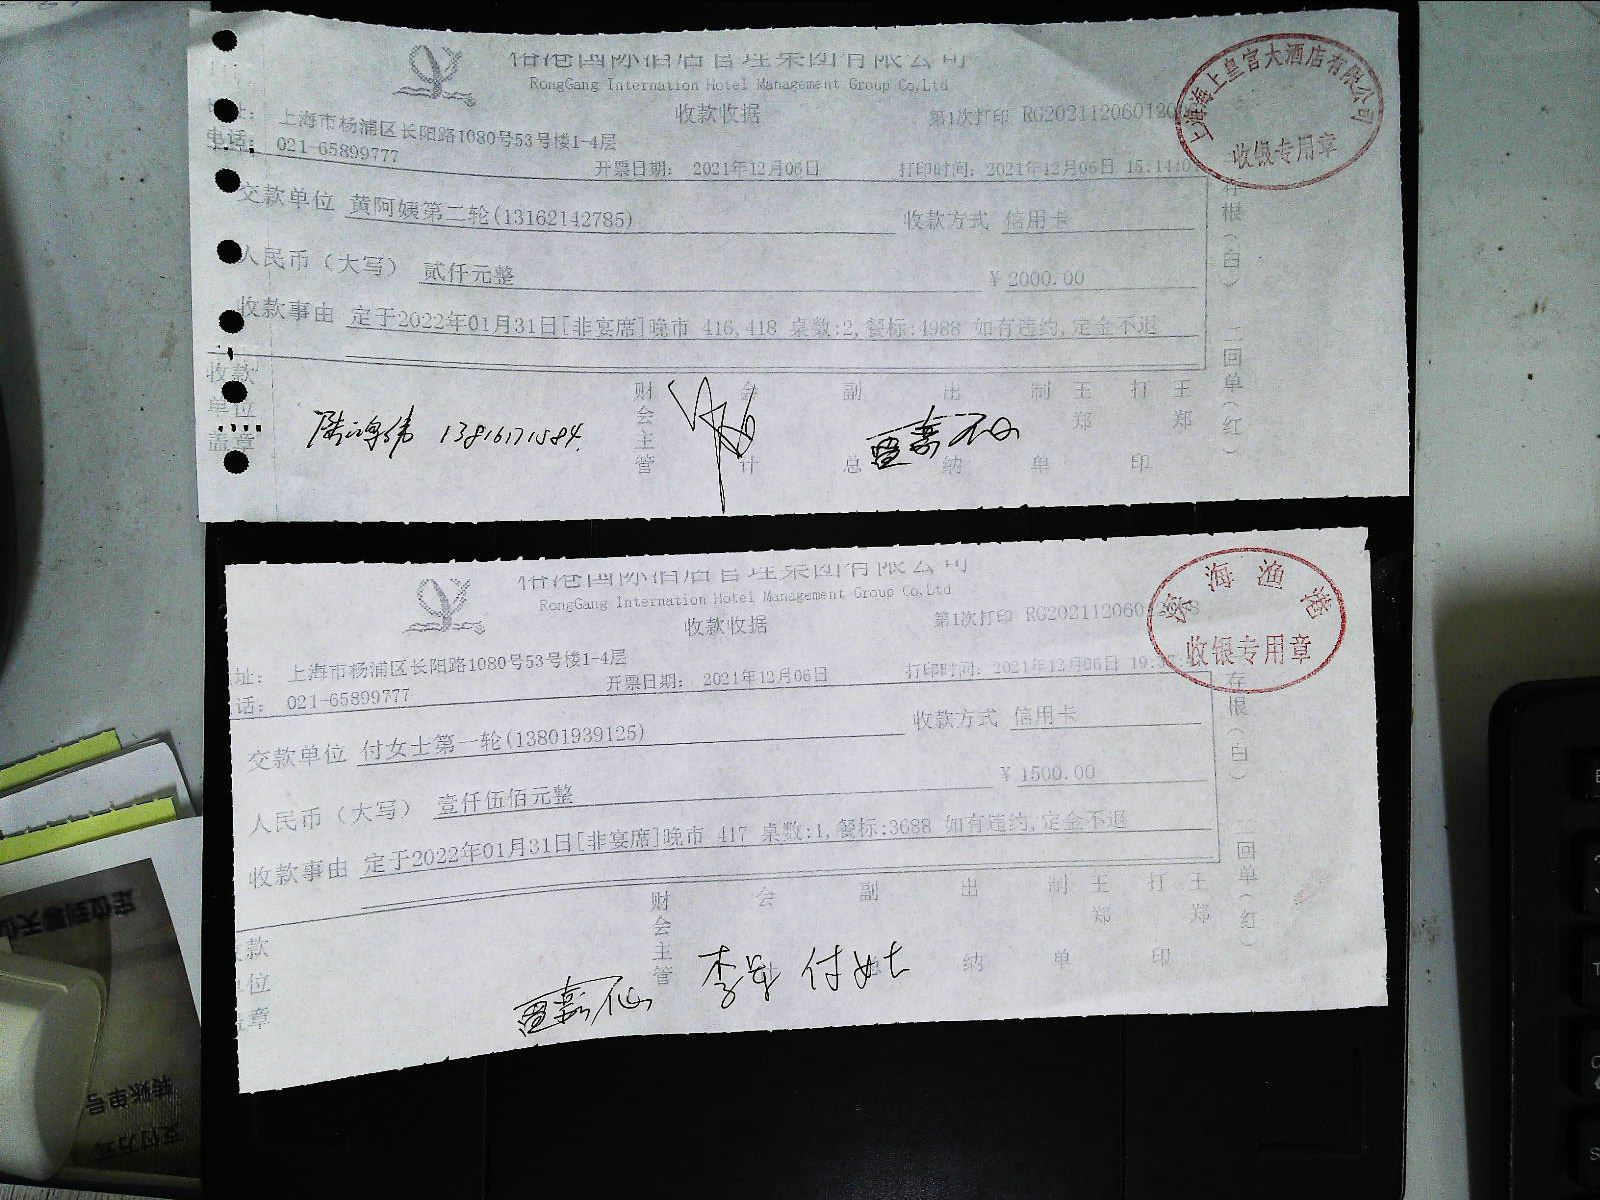 裕港国际酒店管理集团有限公司
RongGang Internation Hotel Management Group Co,Ltd
收款收据
第1次打印 RG20211206012
址: 上海市杨浦区长阳路1080号53号楼1-4层
电话: 021-65899777
开票日期: 2021年12月06日
打印时间: 2021年12月06日 15:14:0
上海海上皇宫大酒店有限公司
收银专用章
交款单位 黄阿姨第二轮(13162142785)
收款方式 信用卡
人民币（大写） 贰仟元整
¥ 2000.00
收款事由 定于2022年01月31日[非宴席]晚市 416,418 桌数:2,餐标:4988 如有违约,定金不退
存根（白） 二回单（红）
收款单位盖章
财会主管
会计
副总
出纳
制单
王郑
打印
王郑
陆鸿伟 13816171584
裕港国际酒店管理集团有限公司
RongGang Internation Hotel Management Group Co,Ltd
收款收据
第1次打印 RG2021120601
址: 上海市杨浦区长阳路1080号53号楼1-4层
话: 021-65899777
开票日期: 2021年12月06日
打印时间: 2021年12月06日 19:37
海渔港
收银专用章
交款单位 付女士第一轮(13801939125)
收款方式 信用卡
人民币（大写） 壹仟伍佰元整
¥ 1500.00
收款事由 定于2022年01月31日[非宴席]晚市 417 桌数:1,餐标:3688 如有违约,定金不退
存根（白） 二回单（红）
款位章
财会主管
会
副总
出纳
制单
王郑
打印
王郑
付女士
定位到聊天位
转账单号
支付方式